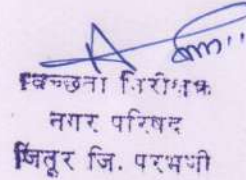 स्वच्छता निरीक्षक
नगर परिषद
जिंतूर जि. परभणी